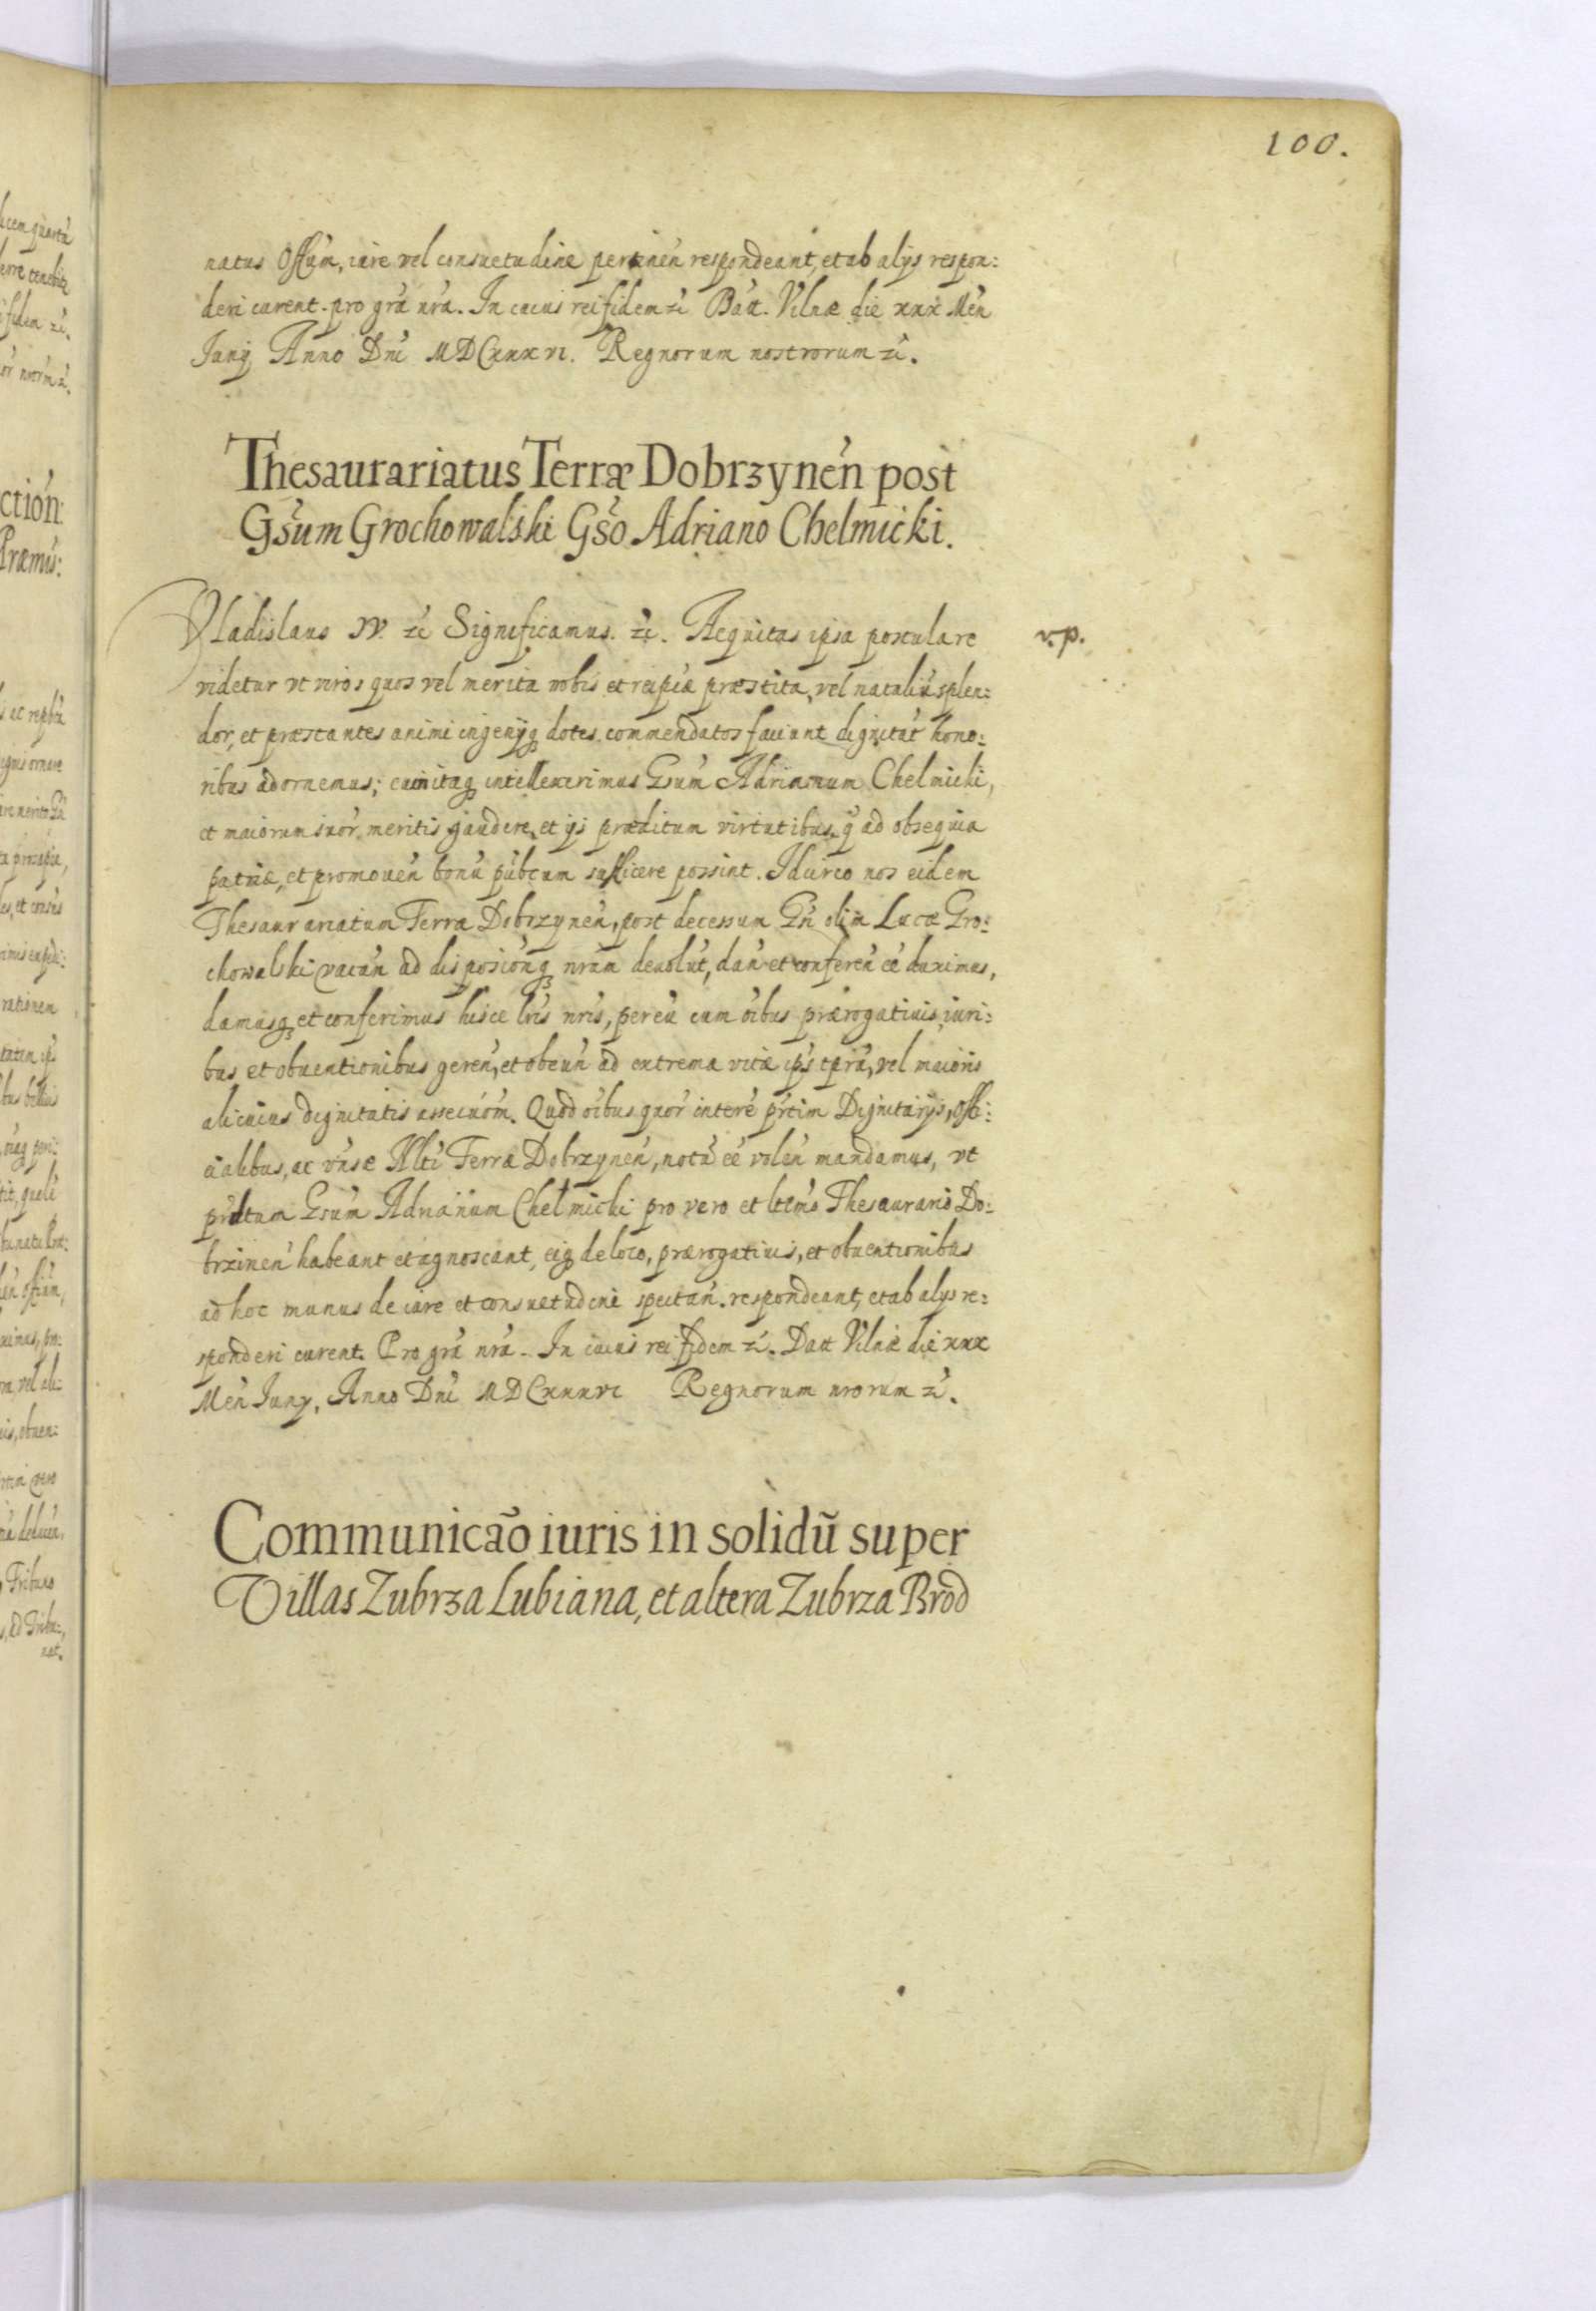 100.
natus Offúm, iure vel consuetudine pertinén respondeant, et ab alijs respon:
deri curent. pro grá nrá. In cuius rei fidem zć Datt. Vilnæ die xxx Meń
Junij Anno Dni MDCxxxvi. Regnorum nostrorum zć.
Thesaurariatus Terræ Dobrzyneń post
Gsum Grochowalski Gso Adriano Chelmicki.
Vladislaus IV. zć Significamus. zć. Aequitas ipsa postulare
v.p.
videtur vt viros quos vel merita nobis et reipcæ præstita, vel nataliũ splen:
dor, et præstantes animi ingenijq dotes commendatos faciunt dignitat hono:
ribus adornemus; cum itaq intellexerimus Gsum Adrianum Chelmicki,
et maiorum suor meritis gaudere, et ijs præditum virtutibus, q ad obsequia
patriæ, et promoueń bonũ pubcum sufficere possint. Idcirco nos eidem
Thesaurariatum Terræ Dobrzyneń, post decessum Gń olim Lucæ Gro:
chowalski vacań ad disposiciónq nram deuolut, dań et confereń eé duximus,
damusq et conferimus hisce lris nris, per eũ cum oibus prærogatiuis, iuri:
bus et obuentionibus gereń, et obeuń ad extrema vitæ ips tpra, vel maioris
alicuius dignitatis assecuóm. Quod oibus quor interé prtim Dignitarijs, Offi:
cialibus, ac vnsæ Nlti Terræ Dobrzyneń, notũ eé voleń mandamus, vt
prdtum Gsum Adrianum Chelmicki pro vero et lttmo Thesaurario Do:
brzineń habeant et agnoscant, eiq de loco, prærogatiuis, et obuentionibus
ad hoc munus de iure et consuetudine spectań. respondeant, et ab alijs re:
sponderi curent. Pro grá nrá. In cuius rei fidem zć. Datt Vilnæ die xxx
Meń Junij, Anno Dni MDCxxxvi Regnorum nrorum zć.
Communicão iuris in solidũ super
Villas Zubrza Lubiana, et altera Zubrza Brod